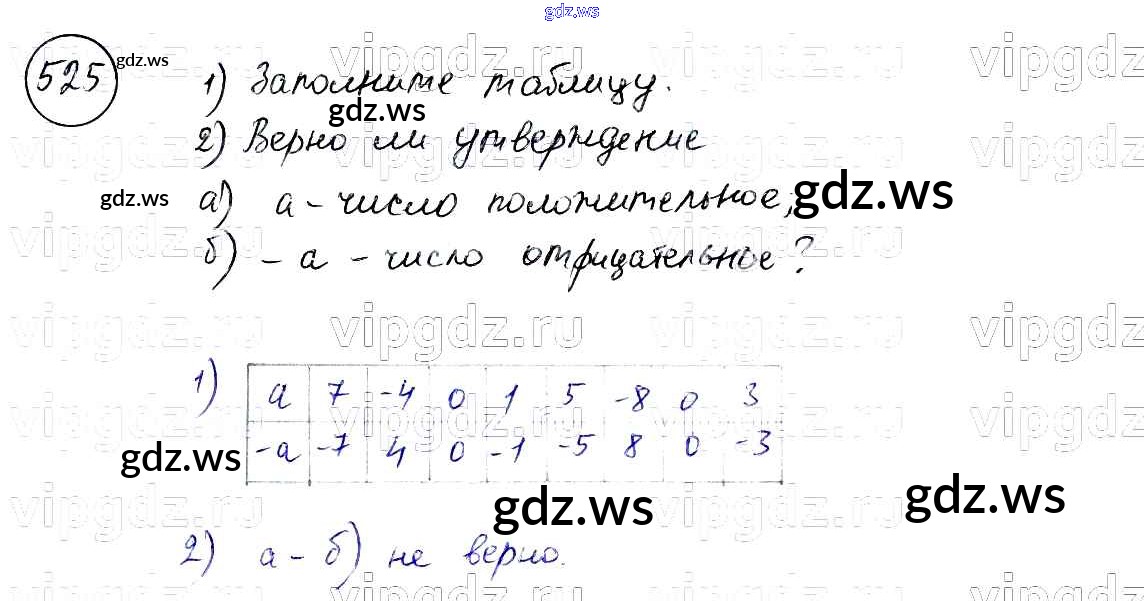 gdz.ws
525 gdz.ws 1) Заполните таблицу.
gdz.ws
2) Верно ли утверждение
gdz.ws а) а - число положительное, gdz.ws
б) - а - число отрицательное?
vipgdz.ru vipgdz.ru vipgdz.ru vipgdz.ru
1) а 7 -4 0 1 5 -8 0 3
-а -7 4 0 -1 -5 8 0 -3
gdz.ws gdz.ws gdz.ws
2) а - б) не верно.